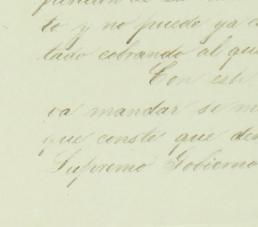 to y no puedo ya
cobrando al
Con est
va mandar se
que conste que
Supremo Gobierno